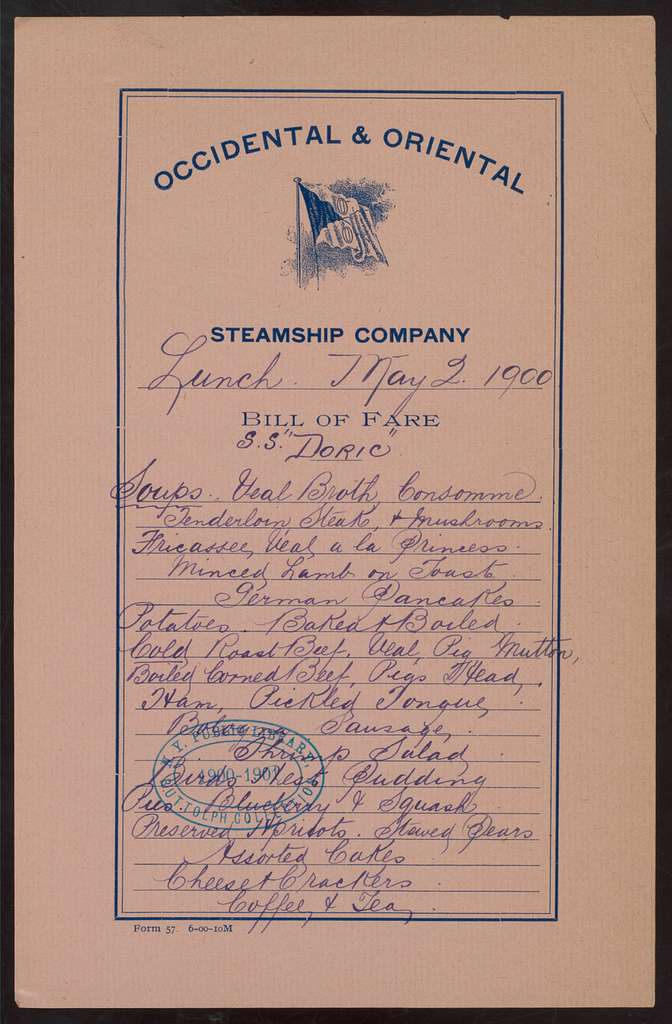 OCCIDENTAL & ORIENTAL
O O
STEAMSHIP COMPANY
Lunch. May 2. 1900
BILL OF FARE
S.S. "DORIC"
Soups.. Veal Broth, Consomme.
Tenderloin Steak, & Mushrooms
Fricassee, Veal, a la Princess.
Minced Lamb on Toast,
German Pancakes.
Potatoes. Baked & Boiled.
Cold Roast Beef, Veal, Pig, Mutton,
Boiled Corned Beef, Pigs Head,
Ham, Pickled Tongue,
Sausage,
Shrimp Salad
Birds Nest Pudding
Pies. Blueberry & Squash
Preserved Apricots. Stewed Pears
Assorted Cakes
Cheese & Crackers.
Coffee, & Tea,
N.Y. PUBLIC LIBRARY,
1900-1901
BUTTOLPH COLLECTION
Form 57. 6-00-10M